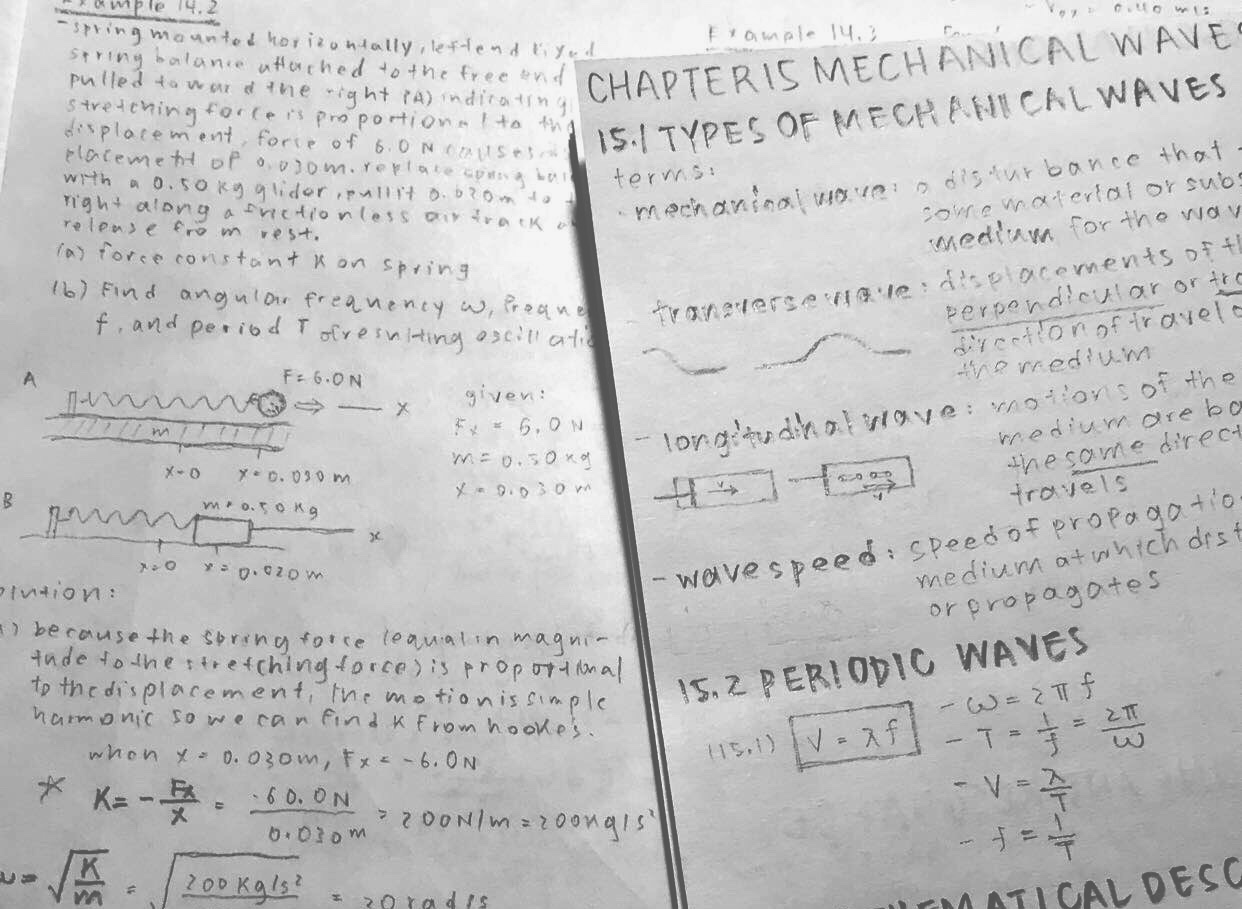 Example 14.2
-spring mounted horizontally, left end fixed
spring balance attached to the free end
pulled toward the right (A) indicating
stretching force is proportional to the
displacement, force of 6.0 N causes
placement of 0.030m. replace spring
with a 0.50 kg glider, pull it 0.020m to
right along a frictionless air track
release from rest.
(a) force constant K on spring
(b) Find angular frequency ω,
f, and period T of resulting
A
F = 6.0 N
x
m
x=0 x=0.030 m
given:
Fx = 6.0 N
m = 0.50 kg
x = 0.030 m
B
m=0.50 Kg
x
x=0 x = 0.020 m
a) because the spring force (equal in magni-
tude to the stretching force) is proportional
to the displacement, the motion is simple
harmonic so we can find K from hooke's.
when x = 0.030m, Fx = -6.0N
K = - Fx/x = -60.0N/0.030m = 200N/m = 200Kg/s²
= √K/m = √200 Kg/s² = 20 rad/s
Example 14.3
CHAPTER 15 MECHANICAL WAVES
15.1 TYPES OF MECHANICAL WAVES
terms:
- mechanical wave: a disturbance that
some material or
medium for the
- transverse wave: displacements of
perpendicular or
direction of travel
the medium
- longitudinal wave: motions of the
medium are
the same
travels
v
v
- wave speed: speed of
medium at which
or propagates
15.2 PERIODIC WAVES
(15.1) V = λf
- ω = 2πf
- T = 1/f = 2π/ω
- V = λ/T
- f = 1/T